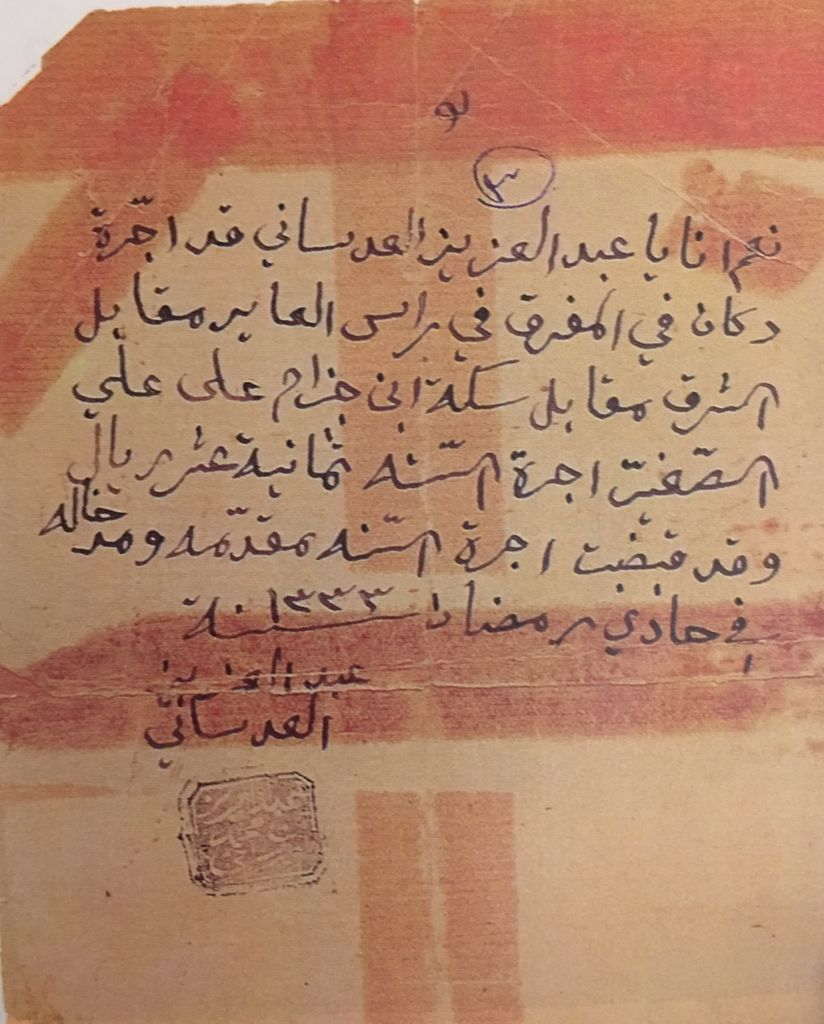 ٣
نعم انا يا عبد العزيز العدساني قد اجّرة
دكان في المفرق في راس العاير مقابل
الشرق مقابل سكة ابن جزام على علي
اجرة السّنه ثمانية عشر ريال
وقد قبضت اجرة السّنه مقدّمه ومدخاله
في رمضان سنة ١٣٣٣
عبد العزيز
العدساني